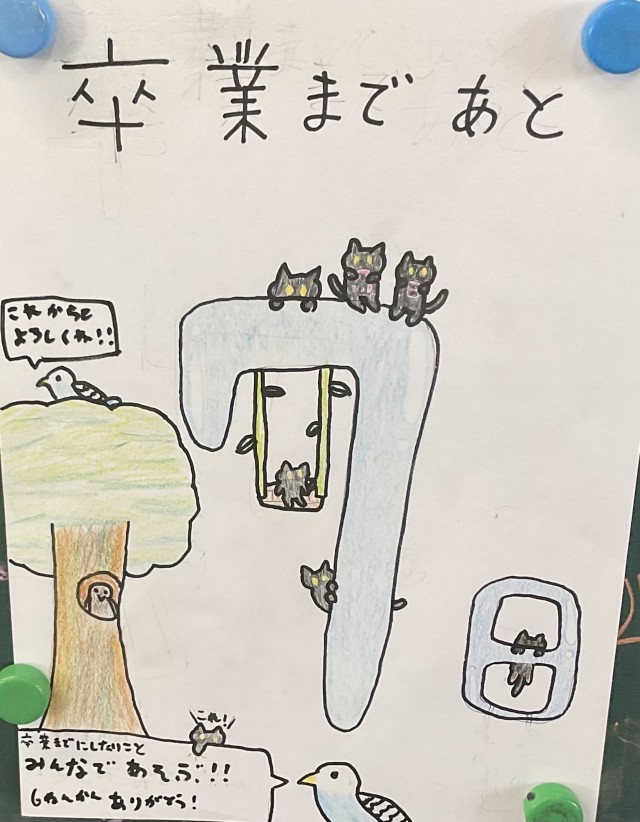 卒業まであと
これからも
よろしくね!!
7
日
これ!
卒業までにしたいこと
みんなであそぶ!!
6ねんかんありがとう!